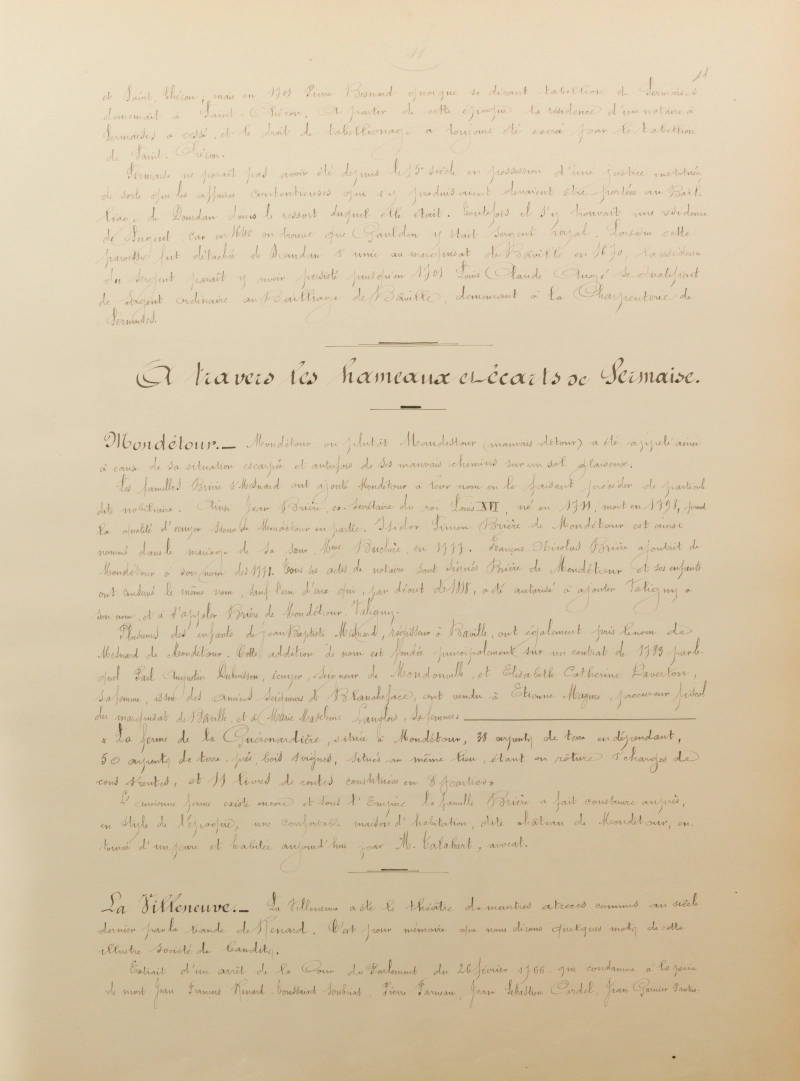 11
11
et Saint Chéron ; mais en 1701 Pierre Besnard quoique se disant tabellion de Sermaise
demeurait à Saint-Chéron. A partir de cette époque la résidence d'un notaire à
Sermaises a cessé, et le droit de tabellionage a toujours été exercé par le tabellion
de Saint-Chéron.
Sermaise ne paraît pas avoir été depuis le 15e siècle en possession d'une justice
de sorte que les affaires contentieuses qui s'y produisaient devaient être portées au Bail
liage de Dourdan dans le ressort duquel elle était. Toutefois il s'y trouvait une résidence
de Sergent, car en on trouve que Gauldon y était sergent royal. Lorsque cette
paroisse fut détachée de Dourdan & unie au marquisat de Bâville en 1670, la résidence
du sergent paraît y avoir persisté jusqu'en 1701 Louis Claude Augé se qualifiant
de sergent ordinaire au Bailliage de Bâville, demeurant à la Charpenterie de
Sermaises.
A travers les hameaux et écarts de Sermaise.
Mondétour. — Mondétour ou plutôt Maudestour (mauvais détour) a été appelé ainsi
à cause de sa situation escarpée et autrefois de ses mauvais chemins sur un sol glaiseux.
Les familles Brière & Mesnard ont ajouté Mondétour à leur nom en le faisant précéder de particule
dite nobiliaire. Ainsi Jean Brière, ex-Secrétaire du roi Louis XVI, né en 1711, mort en 1798, prend
la qualité d'écuyer sieur de Mondétour en partie. Isidor Simon Brière de Mondétour est ainsi
nommé dans le mariage de sa sœur Mme Buchère, en 1777. François Nicolas Brière ajoutait de
Mondétour à son nom dès 1791. Tous ses actes de notaire sont signés Brière de Mondétour et ses enfants
ont conservé le même nom, sauf l'un d'eux qui, par décret de a été autorisé à ajouter Valigny à
son nom, et à s'appeler Brière de Mondétour-Valigny.
Plusieurs des enfants de Jean Baptiste Mesnard, régisseur à Bâville, ont également pris le nom de
Mesnard de Mondétour. Cette addition de nom est fondée principalement sur un contrat de 1783 par le-
quel Paul Augustin Dubuisson, écuyer, seigneur de Mondonville, et Elisabeth Catherine Daverton,
sa femme, issue des anciens seigneurs de Blancheface, ont vendu à Etienne Magnée, procureur fiscal
du marquisat de Bâville, et à Marie Madeleine Langlois, sa femme
« La ferme de la Guérenardière, située à Mondétour, 38 arpents de terre en dépendant,
50 arpents de terre, prés, bois & vignes, situés au même lieu, étant en rôture & chargés de
cens & rentes, et 11 livres de rentes constituées en 8 parties »
L'ancienne ferme existe encore et sous l'Empire la famille Brière a fait construire auprès,
en style de l'époque, une confortable maison d'habitation, dite château de Mondétour, en-
tourée d'un parc et habitée aujourd'hui par M. Talabert, avocat.
La Villeneuve. — La Villeneuve a été le théâtre de meurtres atroces commis au siècle
dernier par la bande de Renard. C'est pour mémoire que nous dirons quelques mots de cette
illustre société de bandits.
Extrait d'un arrêt de la Cour du Parlement du 26 février 1766 qui condamne à la peine
de mort Jean François Renard, Toussaint Pierre Jean Sébastien Cardel, Jean Garnier